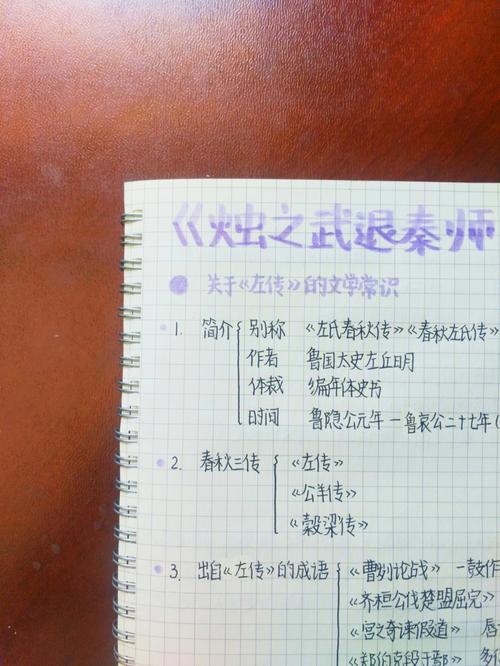 《烛之武退秦师
关于《左传》的文学常识
1. 简介 别称 《左氏春秋传》《春秋左氏传》
作者 鲁国太史左丘明
体裁 编年体史书
时间 鲁隐公元年－鲁哀公二十七年(
2. 春秋三传 《左传》
《公羊传》
《穀梁传》
3. 出自《左传》的成语 《曹刿论战》 一鼓作
《齐桓公伐楚盟屈完》
《宫之奇谏假道》 唇
《郑伯克段于鄢》 多